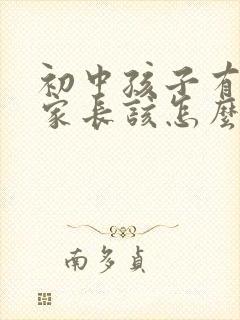 初中孩子有
家长该怎麼
南多貞